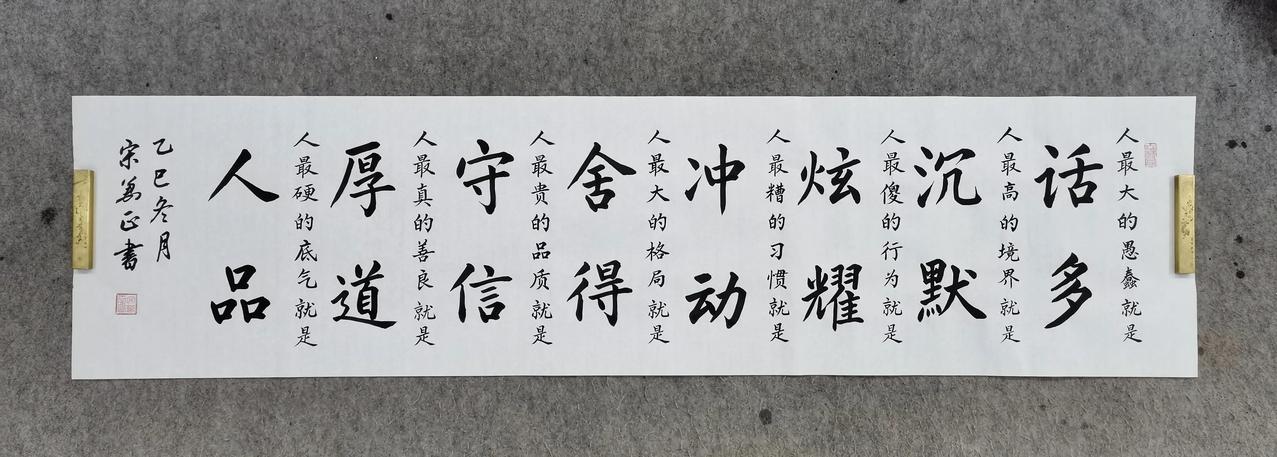 人最大的愚蠢就是
话多
人最高的境界就是
沉默
人最傻的行为就是
炫耀
人最糟的习惯就是
冲动
人最大的格局就是
舍得
人最贵的品质就是
守信
人最真的善良就是
厚道
人最硬的底气就是
人品
乙巳冬月
宋万正书